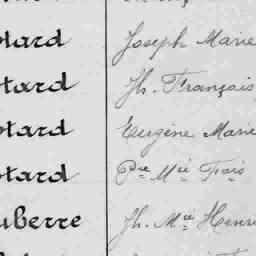 tard Joseph Marie
tard Jh. François
tard Eugène Marie
tard Pre Mie Frois
uberre Jh. Mie Henri